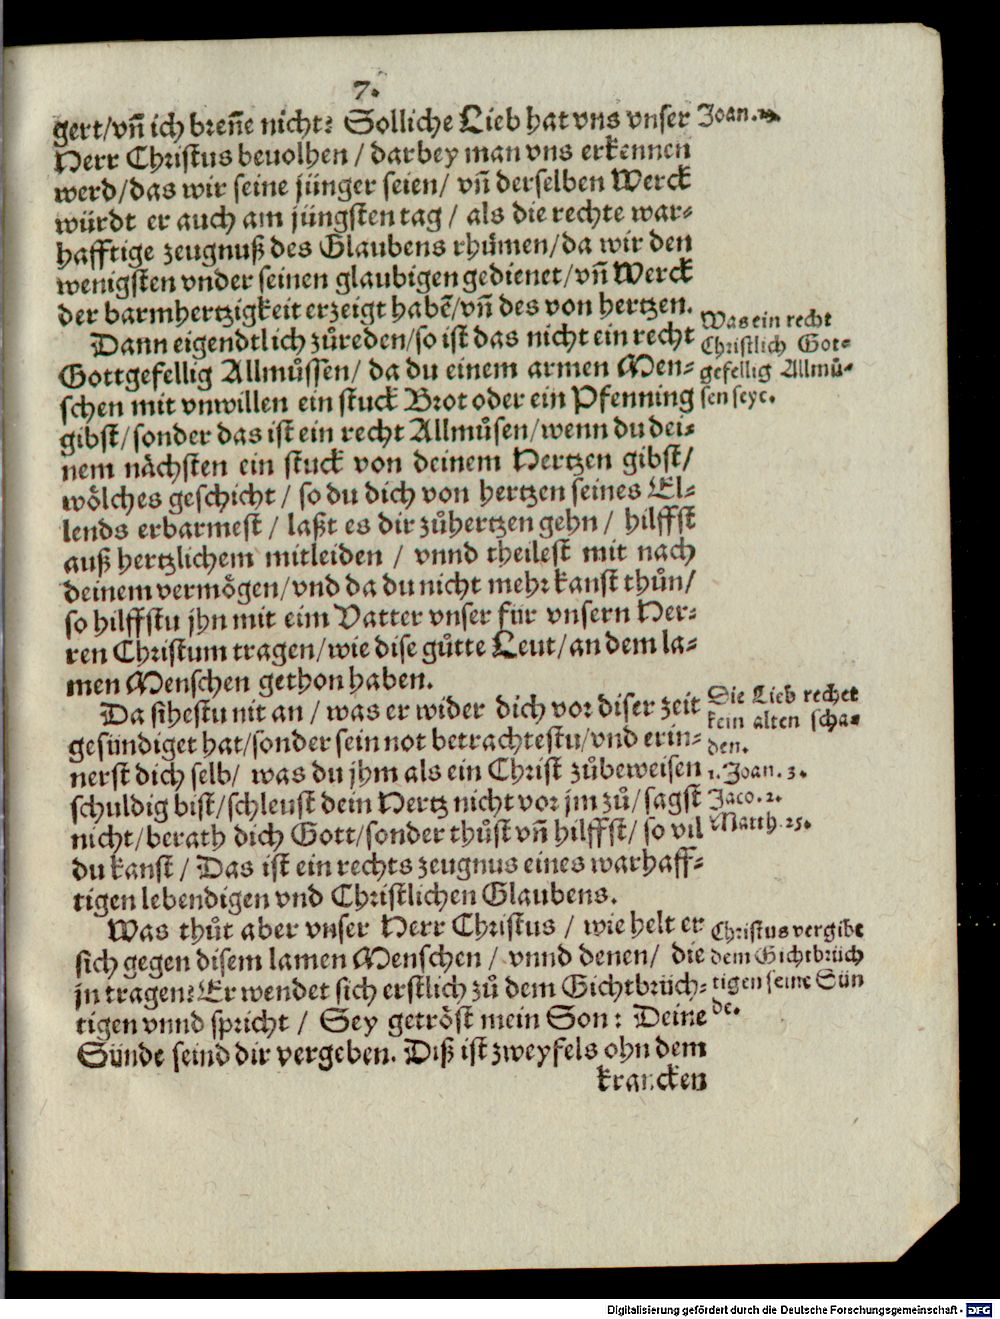 7.
gert/vñ ich breñe nicht? Solliche Lieb hat vns vnser
Herr Christus beuolhen / darbey man vns erkennen
werd/das wir seine jünger seien/ vñ derselben Werck
würdt er auch am jüngsten tag / als die rechte war-
hafftige zeugnuß des Glaubens rhůmen/da wir den
wenigsten vnder seinen glaubigen gedienet/vñ Werck
der barmhertzigkeit erzeigt habẽ/vñ des von hertzen.
Dann eigendtlich zůreden/so ist das nicht ein recht
Gottgefellig Allmůssen/ da du einem armen Men-
schen mit vnwillen ein stuck Brot oder ein Pfenning
gibst/sonder das ist ein recht Allmůsen/wenn du dei-
nem nächsten ein stuck von deinem Hertzen gibst/
wölches geschicht / so du dich von hertzen seines El-
lends erbarmest / laßt es dir zůhertzen gehn / hilffst
auß hertzlichem mitleiden / vnnd theilest mit nach
deinem vermögen/vnd da du nicht mehr kanst thůn/
so hilffstu jhn mit eim Vatter vnser für vnsern Her-
ren Christum tragen/wie dise gůtte Leut/an dem la-
men Menschen gethon haben.
Da sihestu nit an / was er wider dich vor diser zeit
gesündiget hat/sonder sein not betrachtestu/vnd erin-
nerst dich selb/ was du jhm als ein Christ zůbeweisen
schuldig bist/schleust dein Hertz nicht vor jm zů/sagst
nicht/berath dich Gott/sonder thůst vñ hilffst/so vil
du kanst / Das ist ein rechts zeugnus eines warhaff-
tigen lebendigen vnd Christlichen Glaubens.
Was thůt aber vnser Herr Christus / wie helt er
sich gegen disem lamen Menschen / vnnd denen/ die
jn tragen? Er wendet sich erstlich zů dem Gichtbrüch-
tigen vnnd spricht / Sey getröst mein Son: Deine
Sünde seind dir vergeben. Diß ist zweyfels ohn dem
krancken
Joan.
Was ein recht
Christlich Got-
gefellig Allmů-
sen seye.
Die Lieb rechet
kein alten scha-
den.
1. Joan. 3.
Jaco. 2.
Matth. 25.
Christus vergibt
dem Gichtbrüch
tigen seine Sün
de.
Digitalisierung gefördert durch die Deutsche Forschungsgemeinschaft - DFG